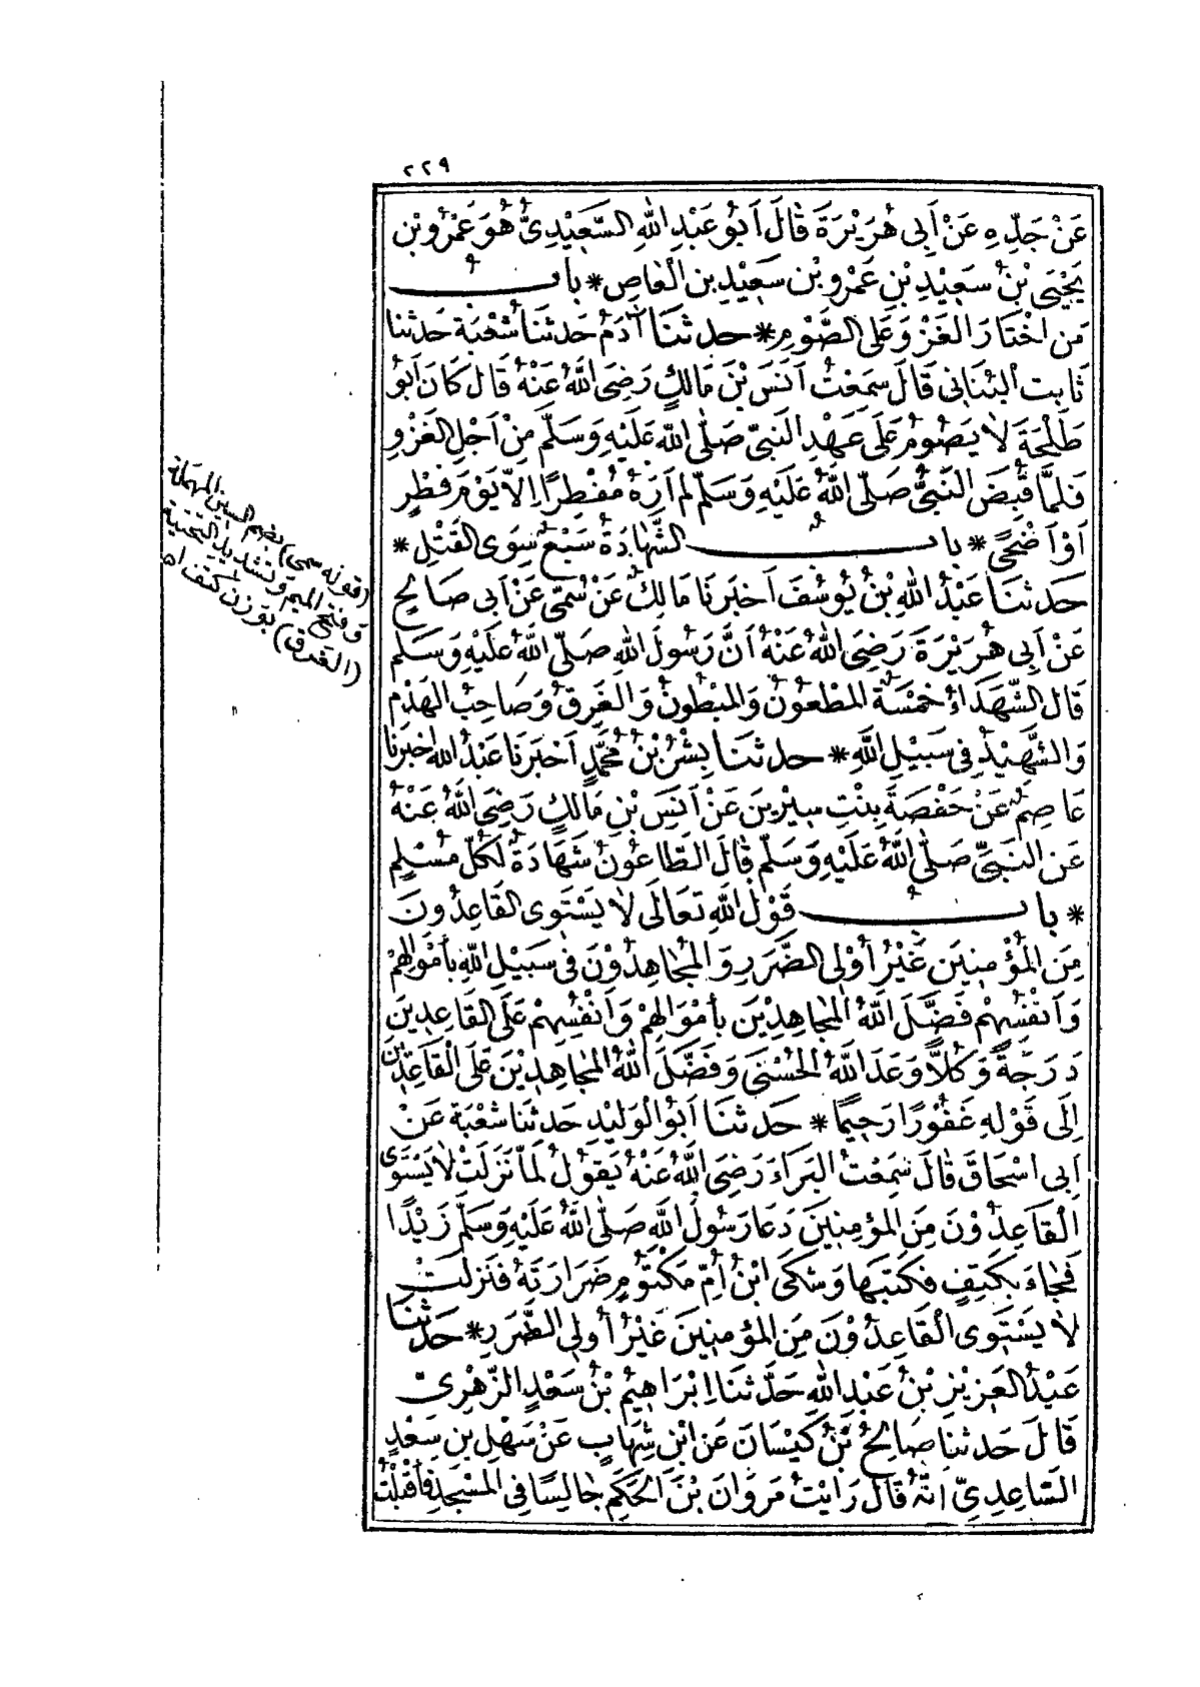 ٢٢٩
عَنْ جَدِّهِ عَنْ أَبِى هُرَيْرَةَ قَالَ أَبُو عَبْدِ اللهِ السَّعِيْدِىُّ هُوَ عَمْرُو بْن
يَحْيَى بْنُ سَعِيْدِ بْنِ عَمْرِو بْنِ سَعِيْدِ بنِ الْعَاصِ * بابُ
مَن اخْتَارَ الغَزْوَ عَلَى الصَّوْمِ * حدثنَا آدَمُ حَدثنَا شُعْبَة حَدثنا
ثَابِت البُنَانِى قَالَ سَمِعْتُ أَنَسَ بْنَ مَالِكٍ رَضِىَ اللهُ عَنْهُ قَالَ كَانَ أَبُو
طَلْحَةَ لَا يَصُومُ عَلَى عَهْدِ النَّبِىِّ صَلَّى اللهُ عَلَيْهِ وَسَلَّم مِنْ أَجْلِ الغَزْوِ
فَلَمَّا قُبِضَ النَّبِىُّ صَلَّى اللهُ عَلَيْهِ وَسَلَّم لَم أَرَهُ مُفْطِرًا إِلَّا يَوْمَ فِطْرٍ
أَوْ أَضْحًى * بابُ الشَّهَادَةُ سَبْعٌ سِوَى القَتْلِ *
حَدثنَا عَبْدُ اللهِ بْنُ يُوسُفَ أَخبَرنَا مَالِكٌ عَنْ سُمَىٍّ عَنْ أَبِى صَالِحٍ
عَنْ أَبِى هُرَيْرَةَ رَضِىَ اللهُ عَنْهُ أَنَّ رَسُولَ اللهِ صَلَّى اللهُ عَلَيْهِ وَسَلَّم
قَالَ الشُّهَدَاءُ خَمْسَةٌ المَطْعُونُ وَالمَبْطُونُ وَالغَرِقُ وَصَاحِبُ الهَدْمِ
وَالشَّهِيْدُ فِى سَبِيْلِ اللهِ * حدثنَا بِشْرُ بْنُ مُحَمَّدٍ أَخْبَرَنَا عَبْدُ الله أَخبَرنَا
عَاصِمٌ عَنْ حَفْصَةَ بِنْتِ سِيْرِينَ عَنْ أَنَسِ بْنِ مَالِكٍ رَضِىَ اللهُ عَنْهُ
عَنِ النَّبِىِّ صَلَّى اللهُ عَلَيْهِ وَسَلَّم قَالَ الطَّاعُونُ شَهَادَةٌ لِكُلِّ مُسْلِمٍ
* بابُ قَوْلِ اللهِ تَعَالَى لَا يَسْتَوِى القَاعِدُونَ
مِنَ المُؤْمِنِينَ غَيْرُ أُوْلِى الضَّرَرِ وَالمُجَاهِدُوْنَ فِى سَبِيْلِ اللهِ بِأَمْوَالِهِمْ
وَأَنْفُسِهِمْ فَضَّلَ اللهُ المُجَاهِدِيْنَ بِأَمْوَالِهِمْ وَأَنْفُسِهِمْ عَلَى القَاعِدِينَ
دَرَجَةً وَكُلًّا وَعَدَ اللهُ الحُسْنَى وَفَضَّلَ اللهُ المُجَاهِدِيْنَ عَلَى الْقَاعِدِيْنَ
إِلَى قَوْلِهِ غَفُوْرًا رَحِيمًا * حَدثنَا أَبُو الْوَلِيْدِ حَدثنَا شُعْبَة عَنْ
أَبِى اسْحَاقَ قَالَ سَمِعْتُ البَرَاءَ رَضِىَ اللهُ عَنْهُ يَقُولُ لَمَّا نَزَلَتْ لَا يَسْتَوِى
الْقَاعِدُوْنَ مِنَ المُؤمِنِينَ دَعَا رَسُولُ اللهِ صَلَّى اللهُ عَلَيْهِ وَسَلَّم زَيْدًا
فَجَاءَ بِكَتِفٍ فَكَتَبَهَا وَشَكَى ابْنُ أُمِّ مَكْتُومٍ ضَرَارَتَهُ فَنَزَلَتْ
لَا يَسْتَوِى الْقَاعِدُوْنَ مِنَ المُؤمِنِيْنَ غَيْرُ أُولِى الضَّرَرِ * حَدثنَا
عَبْدُ العَزِيْزِ بْنُ عَبْدِ اللهِ حَدَّثنَا إِبْرَاهِيْمُ بْنُ سَعْدٍ الزُّهْرِىُّ
قَالَ حَدثنَا صَالِحُ بْنُ كَيْسَانَ عَنِ ابْنِ شِهَابٍ عَنْ سَهْلِ بنِ سَعْدٍ
السَّاعِدِىِّ أَنَّهُ قَالَ رَأَيْتُ مَرْوَانَ بْنَ الحَكَمِ جَالِسًا فِى المَسْجِدِ فَأَقْبَلْتُ
(قوله سمى) بضم السين المهملة
وفتح الميم وتشديد التحتية
(الغرق) بوزن كتف اه